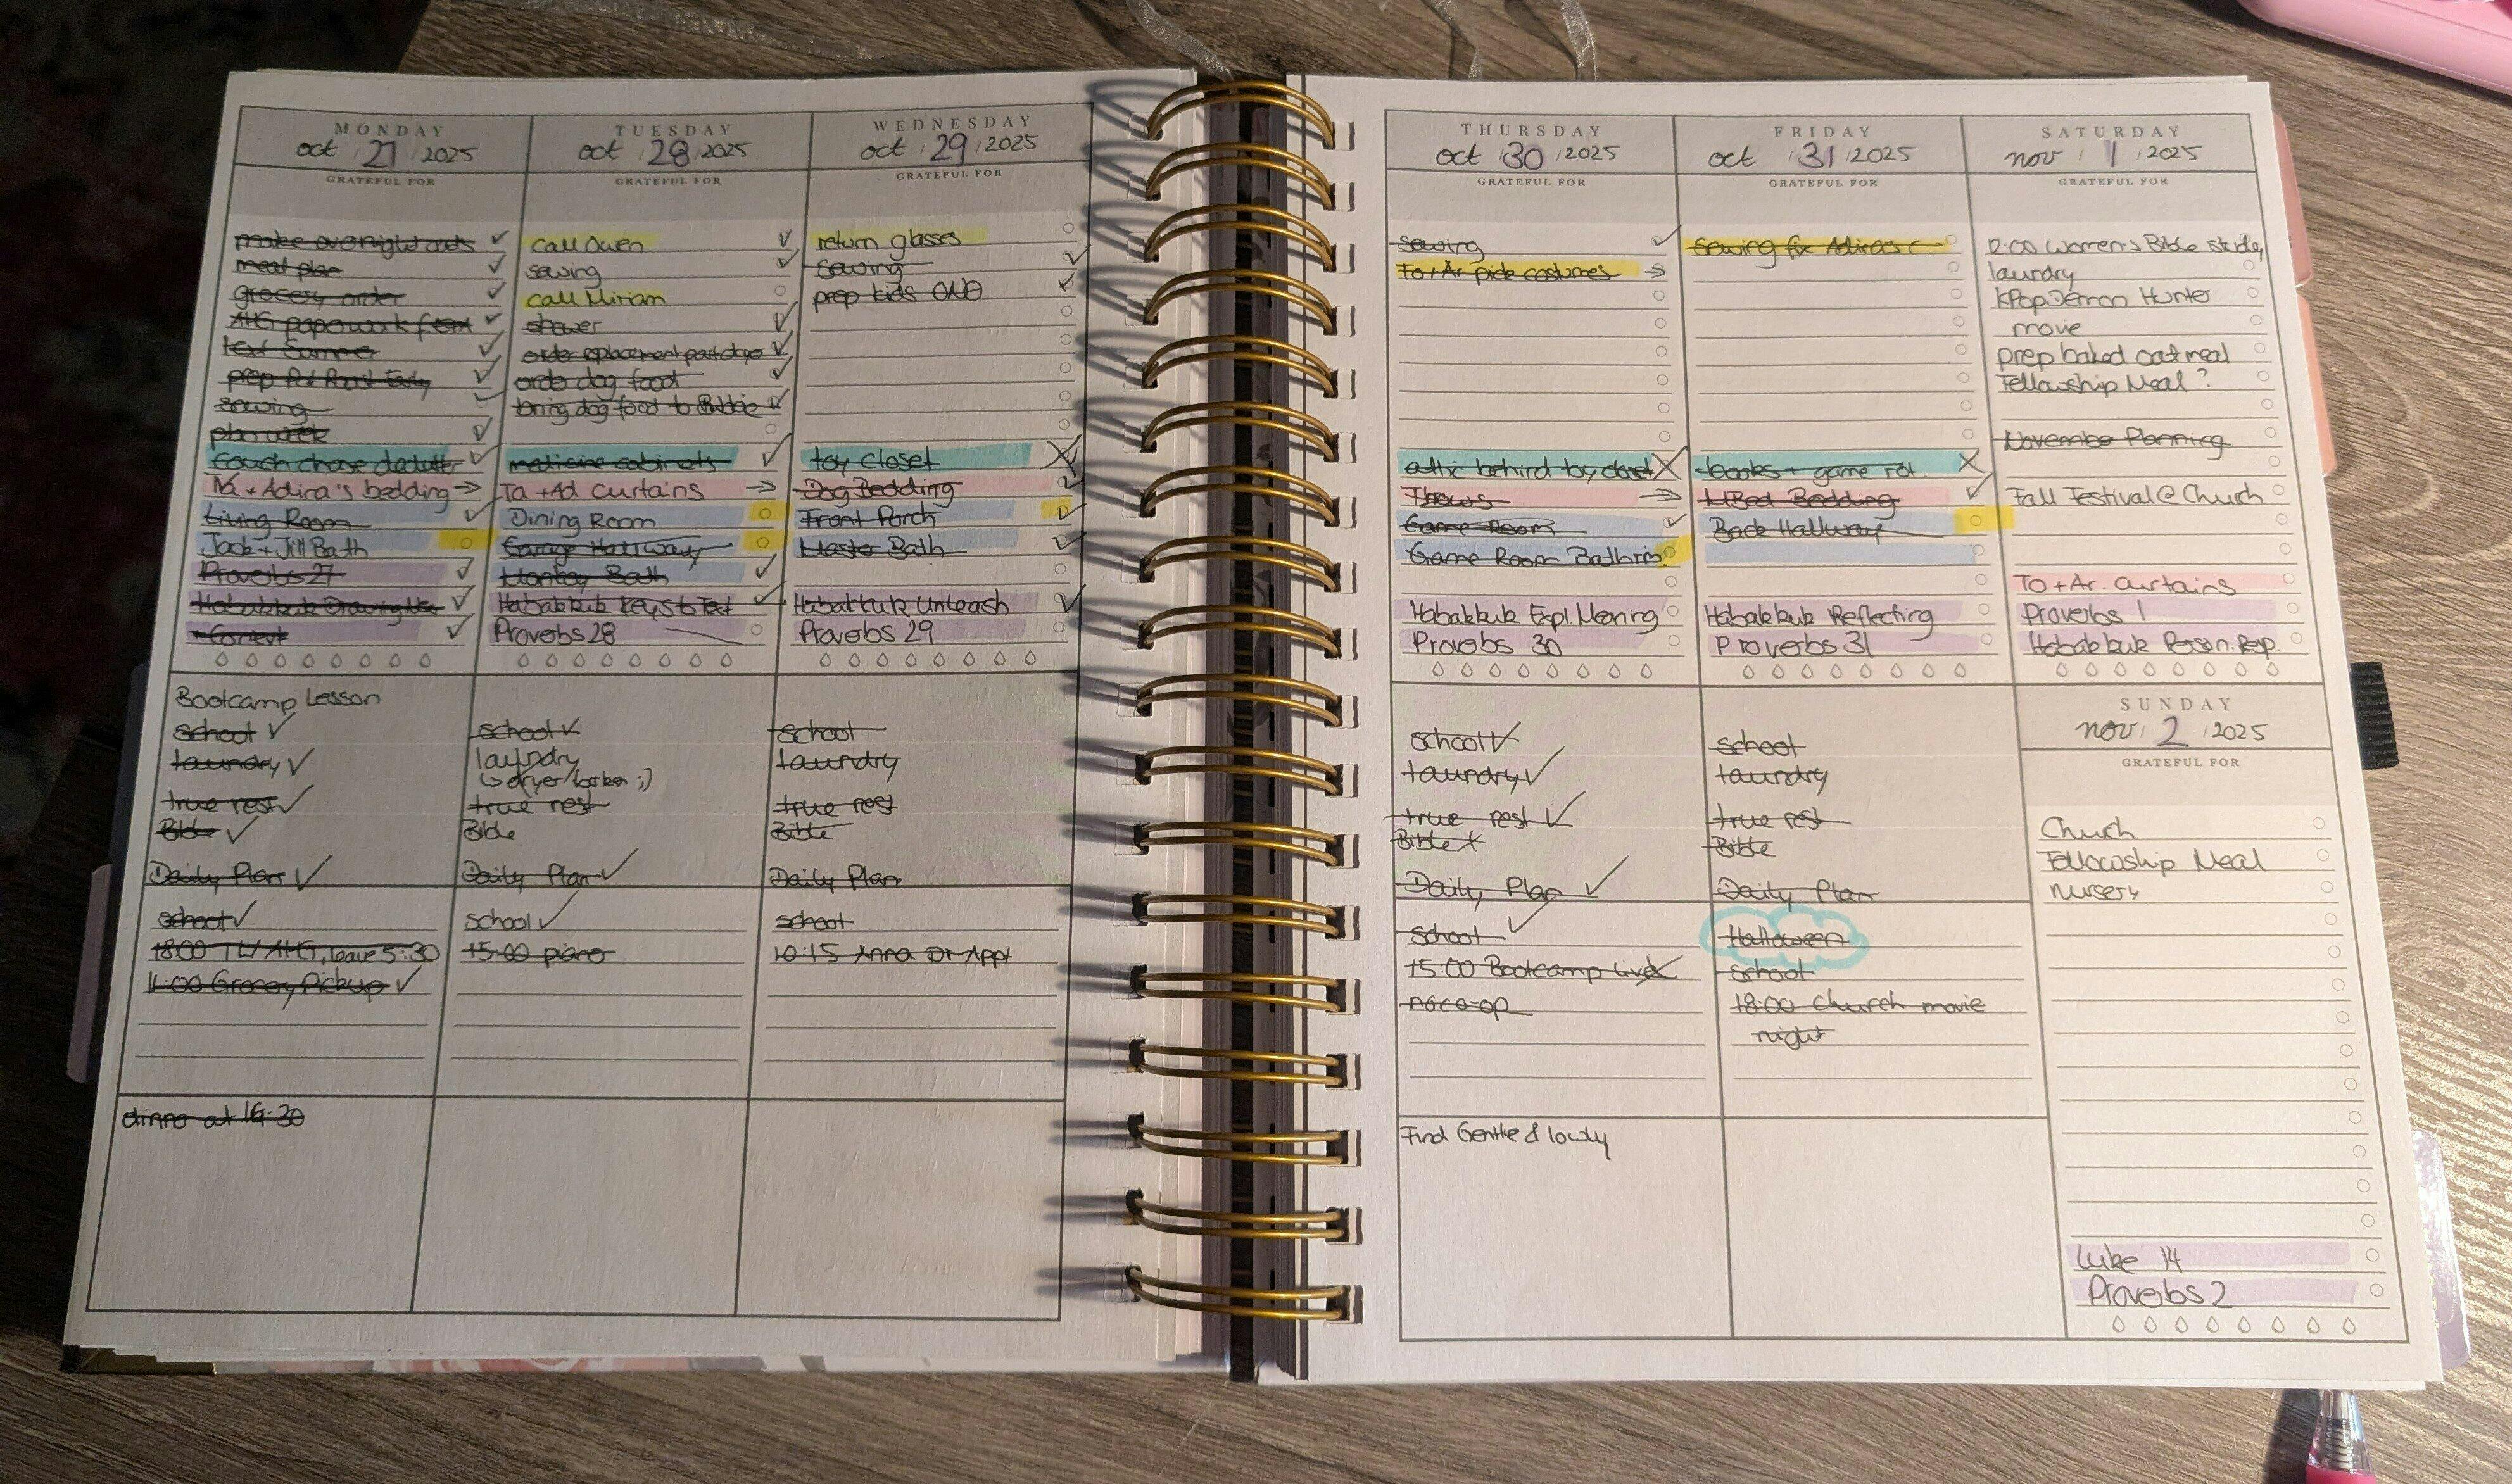 MONDAY
oct / 27 / 2025
GRATEFUL FOR
make overnight oats
meal plan
grocery order
AHG paperwork
text Summer
prep Pot Roast Early
sewing
plan week
couch chase declutter
Na + Adira's bedding →
Living Room
Jack + Jill Bath
Proverbs 27
Habakkuk Drawing
+ Context
Bootcamp Lesson
school
laundry
true rest
Bible
Daily Plan
school
18:00 TL/AHG, leave 5:30
11:00 Grocery Pickup
at 16:30
TUESDAY
oct / 28 / 2025
GRATEFUL FOR
call Owen
sewing
call Miriam
shower
order replacement part
order dog food
bring dog food to
medicine cabinets
Ta + Ad curtains →
Dining Room
Garage Hallway
Monkey Bath
Habakkuk Keys to Text
Proverbs 28
school
laundry
↳ dryer broken ;)
true rest
Bible
Daily Plan
school
15:00 piano
WEDNESDAY
oct / 29 / 2025
GRATEFUL FOR
return glasses
sewing
prep kids
toy closet
Dog Bedding
Front Porch
Master Bath
Habakkuk Unleash
Proverbs 29
school
laundry
true rest
Bible
Daily Plan
school
10:15 Anna Dr Appt
THURSDAY
oct / 30 / 2025
GRATEFUL FOR
sewing
To + Ar pick costumes →
attic behind toy closet
Throws →
Game Room
Game Room Bathrm
Habakkuk Expl. Meaning
Proverbs 30
school
laundry
true rest
Bible
Daily Plan
school
15:00 Bootcamp Live
no co-op
Find Gentle & lowly
FRIDAY
oct / 31 / 2025
GRATEFUL FOR
sewing fix Adira's c
books + game
MBed Bedding
Back Hallway
Habakkuk Reflecting
Proverbs 31
school
laundry
true rest
Bible
Daily Plan
Halloween
school
18:00 Church movie
night
SATURDAY
nov / 1 / 2025
GRATEFUL FOR
Women's Bible study
laundry
KPop Demon Hunter
movie
prep baked oatmeal
Fellowship Meal ?
November Planning
Fall Festival @ Church
To + Ar. Curtains
Proverbs 1
Habakkuk Person. Resp.
SUNDAY
nov / 2 / 2025
GRATEFUL FOR
Church
Fellowship Meal
nursery
Luke 14
Proverbs 2